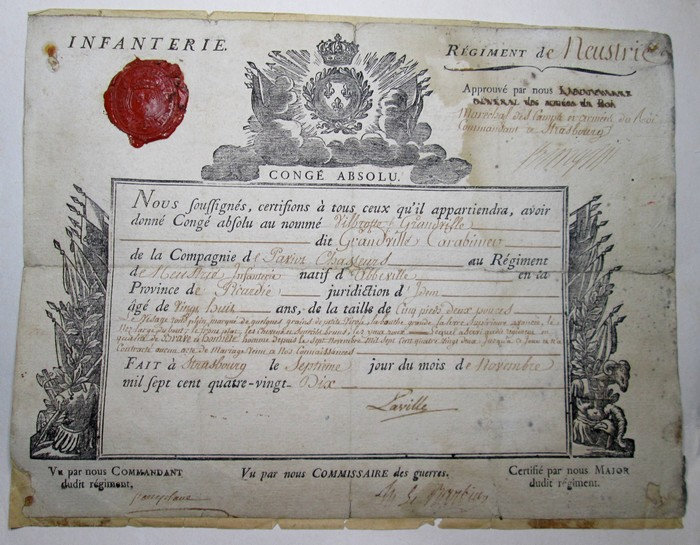 INFANTERIE.
RÉGIMENT de Neustrie
Approuvé par nous
Marechal des Camps et armées du Roi
Commandant a Strasbourg
CONGÉ ABSOLU.
Nous soussignés, certifions à tous ceux qu'il appartiendra, avoir
donné Congé absolu au nommé Grandville
dit Grandville Carabinier
de la Compagnie de Chasseurs au Régiment
de Neustrie Infanterie natif d'Abbeville en la
Province de Picardie juridiction d'Idem
âgé de vingt huit ans, de la taille de Cinq pieds deux pouces
Visage marqué de quelques grains de petite la bouche grande la levre Superieure avancée, le
Nez large du bout, les cheveux et
qualité de Brave et honnete homme depuis le Sept Novembre Mil Sept Cent quatre Vingt deux Jusqu'à Ce Jour
Contracté aucun acte de Mariage Venu a Nos Connoissances
FAIT à Strasbourg le Septieme jour du mois de Novembre
mil sept cent quatre-vingt Dix
Laville
Vu par nous COMMANDANT
dudit régiment,
Vu par nous COMMISSAIRE des guerres.
Certifié par nous MAJOR
dudit régiment.